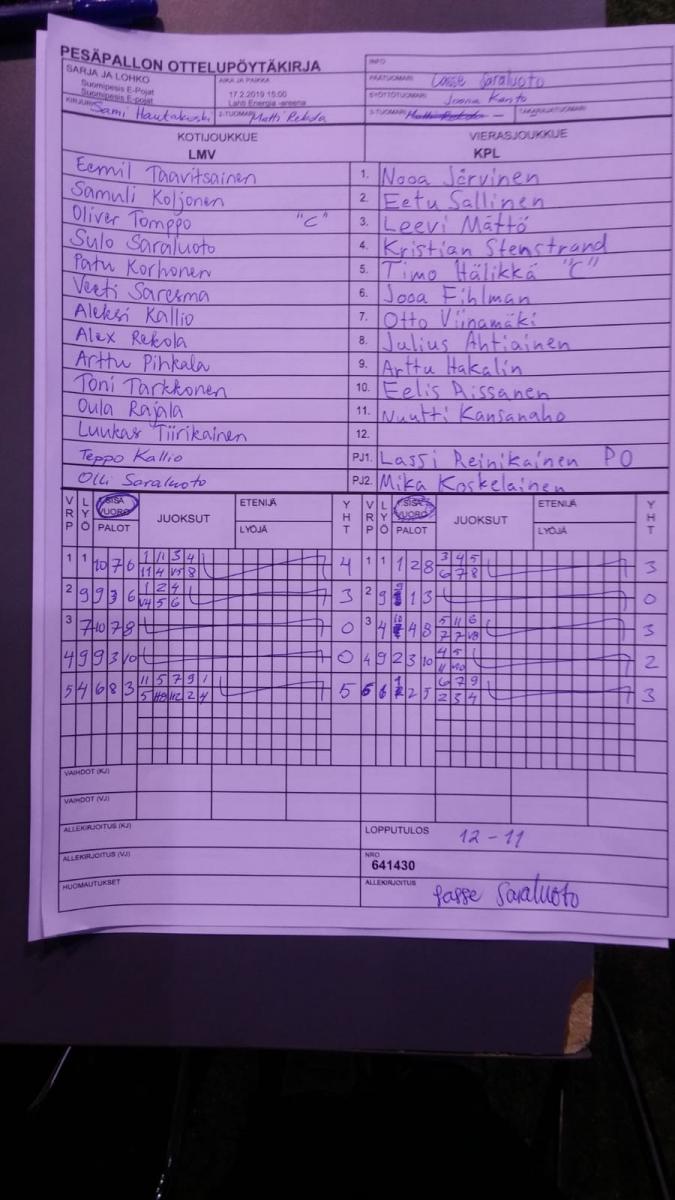 PESÄPALLON OTTELUPÖYTÄKIRJA
INFO
SARJA JA LOHKO
Suomipesis E-Pojat
Suomipesis E-pojat
AIKA JA PAIKKA
17.2.2019 15:00
Lahti Energia -areena
PÄÄTUOMARI Lasse Saraluoto
SYÖTTÖTUOMARI Joona Kanto
KIRJURI Sami Hautakoski
2-TUOMARI Matti Rekola
3-TUOMARI Matti Rekola –
TAKARAJATUOMARI
KOTIJOUKKUE
LMV
VIERASJOUKKUE
KPL
Eemil Taavitsainen 1. Nooa Järvinen
Samuli Koljonen 2. Eetu Sallinen
Oliver Tomppo "C" 3. Leevi Mättö
Sulo Saraluoto 4. Kristian Stenstrand
Patu Korhonen 5. Timo Hälikkä "C"
Veeti Saresma 6. Jooa Fihlman
Aleksi Kallio 7. Otto Viinamäki
Alex Rekola 8. Julius Ahtiainen
Arttu Pihkala 9. Arttu Hakalin
Toni Tarkkonen 10. Eelis Aissanen
Oula Rajala 11. Nuutti Kansanaho
Luukas Tiirikainen 12.
Teppo Kallio PJ1. Lassi Reinikainen PO
Olli Saraluoto PJ2. Mika Koskelainen
VRP LYÖ SISÄVUORO PALOT JUOKSUT ETENIJÄ LYÖJÄ YHT VRP LYÖ SISÄVUORO PALOT JUOKSUT ETENIJÄ LYÖJÄ YHT
1 1 10 7 6 1 11 3 4 4 1 1 1 2 8 3 4 5 3
11 4 V5 8 6 7 8
2 9 9 3 6 1 2 4 3 2 9 9 1 3 0
V4 5 6
3 7 10 7 8 0 3 4 10 4 8 5 11 6 3
7 7 V8
4 9 9 3 10 0 4 9 2 3 10 4 5 2
11 10
5 4 6 8 3 11 5 7 9 1 5 5 6 1 2 5 6 7 9 3
2 3 4
VAIHDOT (KJ)
VAIHDOT (VJ)
ALLEKIRJOITUS (KJ)
LOPPUTULOS 12 - 11
ALLEKIRJOITUS (VJ)
NRO
641430
HUOMAUTUKSET
ALLEKIRJOITUS Lasse Saraluoto